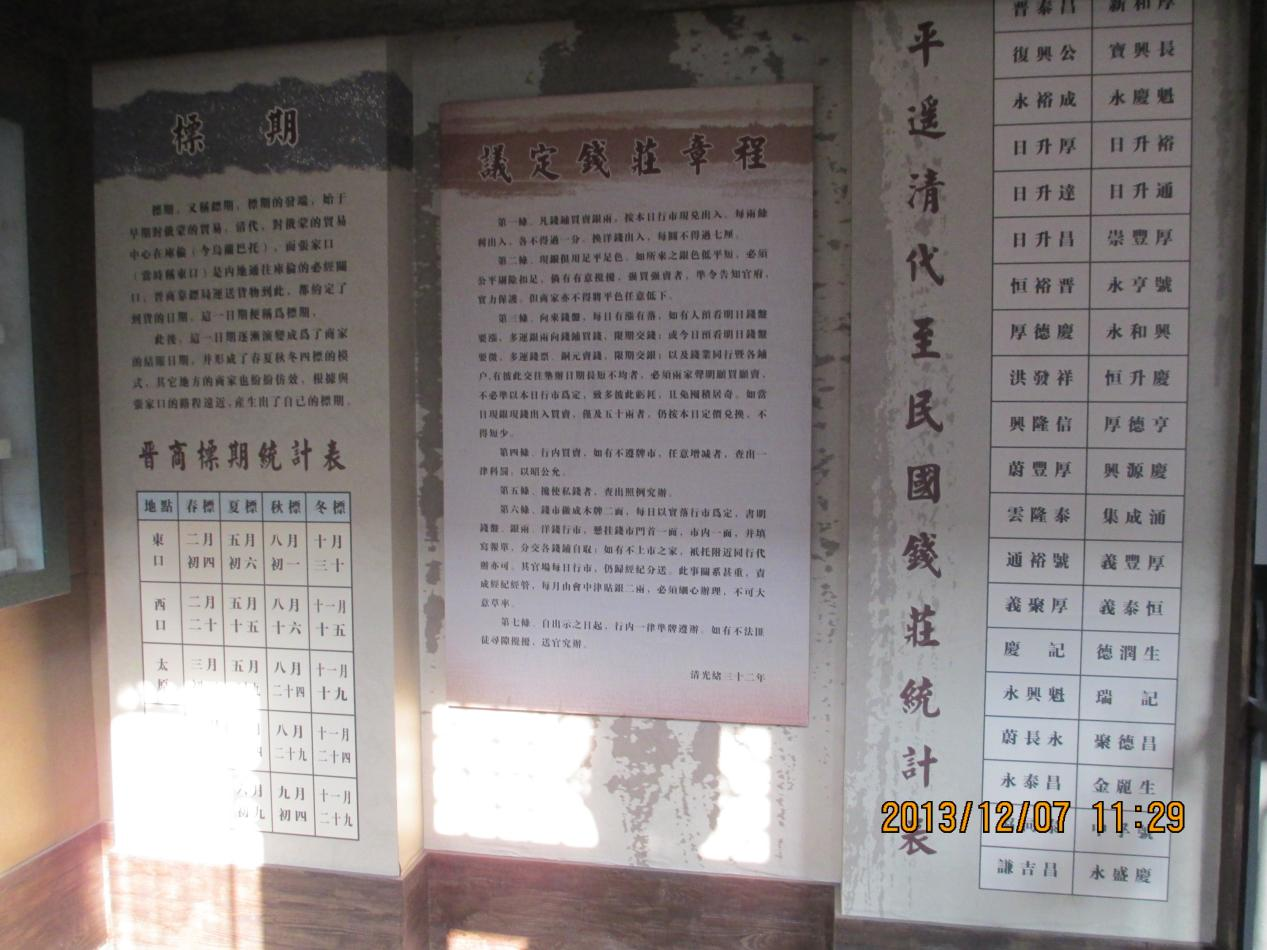 標 期
標期，又稱鏢期，標期的發端，始于
早期對俄蒙的貿易。清代，對俄蒙的貿易
中心在庫倫（今烏蘭巴托），而張家口
（當時稱東口）是内地通往庫倫的必經關
口，晋商靠鏢局運送貨物到此，都約定了
到貨的日期，這一日期便稱爲標期。
此後，這一日期逐漸演變成爲了商家
的結賬日期，并形成了春夏秋冬四標的模
式，其它地方的商家也紛紛仿效，根據與
張家口的路程遠近，産生出了自己的標期。
晋商標期統計表
地點 春標 夏標 秋標 冬標
東口 二月初四 五月初六 八月初一 十月三十
西口 二月二十 五月十五 八月十六 十一月十五
太原 三月 五月 八月二十四 十一月十九
八月二十九 十一月二十四
月初九 九月初四 十一月二十九
議定錢莊章程
第一條、凡錢鋪買賣銀兩，按本日行市現兑出入，每兩餘
利出入，各不得過一分。換洋錢出入，每圓不得過七厘。
第二條、現銀俱用足平足色。如所來之銀色低平短，必須
公平剔除扣足，倘有有意攪擾，强買强賣者，準令告知官府，
實力保護。但商家亦不得將平色任意低下。
第三條、向來錢盤，每日有漲有落，如有人預看明日錢盤
要漲，多運銀兩向錢鋪買錢，限期交錢；或今日預看明日錢盤
要微，多運錢票、銅元賣錢，限期交銀；以及錢業同行暨各鋪
户，有彼此交往墊辦日期長短不均者，必須兩家聲明願買願賣，
不必準以本日行市爲定，致多彼此虧耗，且免囤積居奇。如當
日現銀現錢出入買賣，僅及五十兩者，仍按本日定價兑換，不
得短少。
第四條、行内買賣，如有不遵牌市，任意增减者，查出一
律科罰，以昭公允。
第五條、攙使私錢者，查出照例究辦。
第六條、錢市做成木牌二面，每日以實落行市爲定，書明
錢盤、銀兩、洋錢行市，懸挂錢市門首一面，市内一面，并填
寫報單，分交各錢鋪自取；如有不上市之家，衹托附近同行代
辦亦可。其官場每日行市，仍歸經紀分送。此事關系甚重，責
成經紀經管，每月由會中津貼銀二兩，必須細心辦理，不可大
意草率。
第七條、自出示之日起，行内一律準牌遵辦。如有不法匪
徒尋隙攪擾，送官究辦。
清光緒三十二年
平遥清代至民國錢莊統計表
晋泰昌 新和厚
復興公 寶興長
永裕成 永慶魁
日升厚 日升裕
日升達 日升通
日升昌 崇豐厚
恒裕晋 永亨號
厚德慶 永和興
洪發祥 恒升慶
興隆信 厚德亨
蔚豐厚 興源慶
雲隆泰 集成涌
通裕號 義豐厚
義聚厚 義泰恒
慶 記 德潤生
永興魁 瑞 記
蔚長永 聚德昌
永泰昌 金麗生
謙吉昌 永盛慶
2013/12/07 11:29